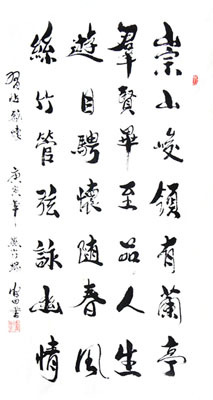 崇山峻領有蘭亭
羣賢畢至品人生
遊目騁懷随春風
絲竹管弦詠幽情
庚寅年 書